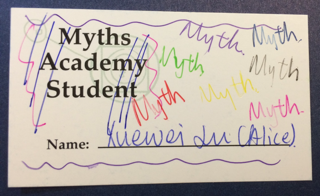 Myths
Academy
Student
Myth.
Myth.
Myth
Myth
Myth
Myth.
Myth.
Name: Xuewei Lu (Alice)